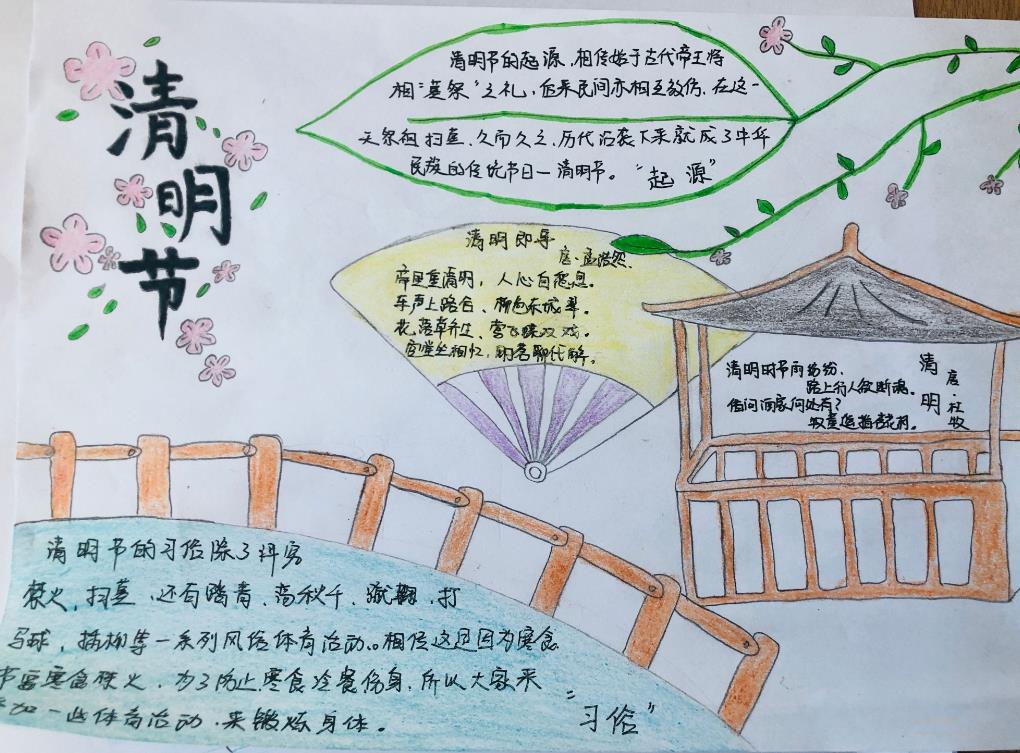 清明节
清明节的起源,相传始于古代帝王将
相"墓祭"之礼,后来民间亦相互效仿,在这一
天祭祖扫墓,久而久之,历代沿袭下来就成了中华
民族的传统节日一清明节。
"起源"
清明即事
唐·孟浩然
帝里重清明,人心自愁思。
车声上路合,柳色东城翠。
花落草齐生,莺飞蝶双戏。
空堂坐相忆,酌茗聊代醉。
清明
唐·杜牧
清明时节雨纷纷,
路上行人欲断魂。
借问酒家何处有?
牧童遥指杏花村。
清明节的习俗除了讲究
禁火,扫墓,还有踏青、荡秋千、蹴鞠,打
马球,插柳等一系列风俗体育活动。相传这是因为寒食
节要寒食禁火,为了防止寒食冷餐伤身,所以大家来
参加一些体育活动,来锻炼身体。
"习俗"